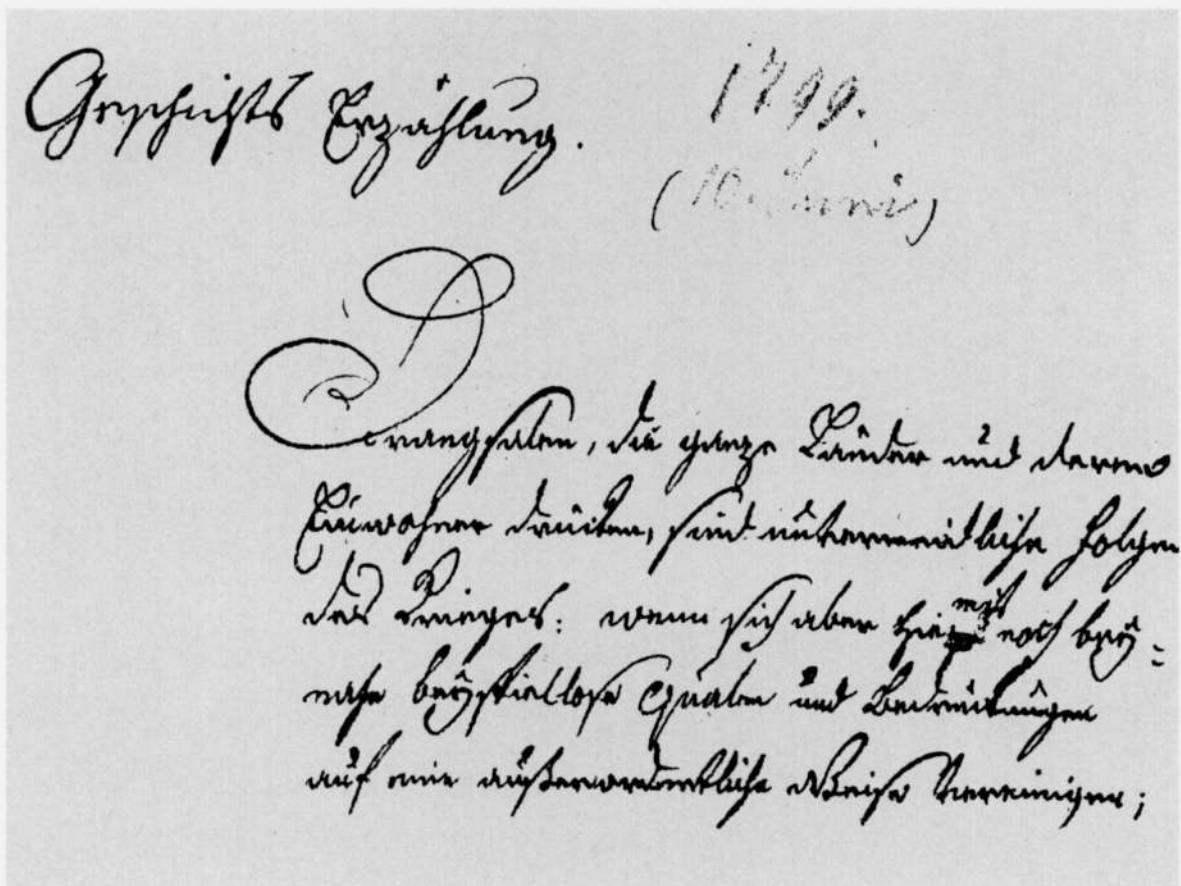 Geschichts Erzählung.
1799.
Drangsalen, die ganze Länder und deren
Einwohner drücken, sind unvermeidliche Folgen
des Krieges: wenn sich aber hiemit noch bey=
nahe beyspiellose Qualen und Bedrückungen
auf eine außerordentliche Weise vereinigen;